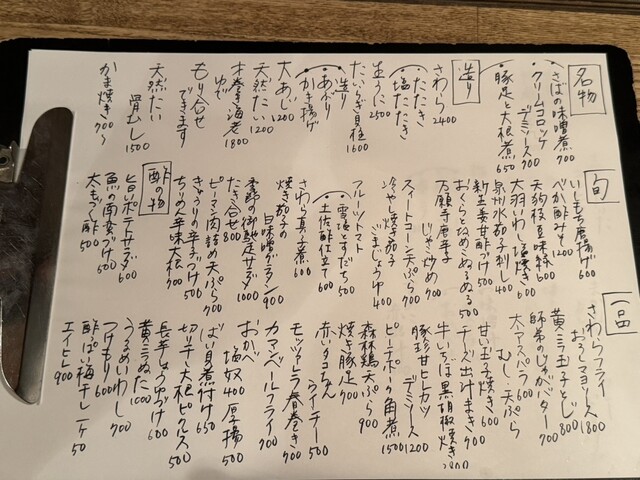 名物
さばの味噌煮 700
クリームコロッケ
デミソース 700
豚足と大根煮 650
造り
さわら 2400
たたき
塩たたき
生うに 2500
たいらぎ貝柱 1600
造り
あぶり
かき揚げ
大あじ 1200
天然たい 1200
本巻き海老 1800
ゆで
もり合せ
できます
天然たい
骨むし 1500
かま焼き 700〜
旬
いしもち唐揚げ 600
べか酢みそ 1200
天豆 600
大羽いわし塩焼き 600
泉州水茄子刺し 400
新生姜甘酢づけ 500
おくらと攻めこぬるぬる 500
万願寺唐辛子
じゃこ炒め 700
スイートコーン天ぷら 700
冷やし焼き茄子
ごまじょうゆ 400
フルーツトマト
雪塩とすだち 500
土佐酢仕立て 600
さわら真子煮 600
焼き茄子の
白味噌グラタン 900
季節の御馳走サラダ 1000
たき合せ 800
ピーマン肉詰め天ぷら 700
きゅうりの辛子づけ 500
ちりめん辛味大根 700
酢の物
旨いポテサラダ 600
魚の南蛮づけ 500
太もづく酢 500
一品
さわらフライ
おろしマヨソース 1800
黄ニラ玉子とじ 800
師弟のじゃがバター 700
太アスパラ 600
むし・天ぷら
甘い玉子焼き 600
チーズ出汁まき 700
牛いちぼ黒胡椒焼き
豚珍甘ヒレカツ
デミソース 1200
ピーチポークの角煮 1500
森林鶏天ぷら 900
焼き豚足 700
赤いタコさん
ウインナー 500
モッツァレラ春巻き 700
カマンベールフライ 700
おかべ
塩奴 400 厚揚 500
ばい貝煮付け 650
切り干し大根ピクルス 500
長芋しょうゆづけ 600
黄ニラぬた 1000
うるめいわし 700
つけもり 600
酢っぱい梅干し一ケ 50
エイヒレ 900